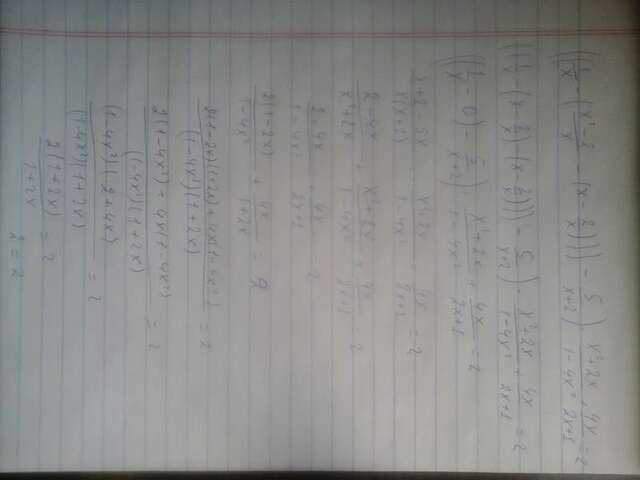 (((1/x - (x²-2/x - (x - 2/x)))) - 5/x+2) x²+2x/1-4x² + 4x/2x+1 = 2
(((1/x - (x - 2/x) - (x - 2/x)))) - 5/x+2) · x²+2x/1-4x² + 4x/2x+1 = 2
(((1/x - 0) - 5/x+2) x²+2x/1-4x² + 4x/2x+1 = 2
x+2-5x/x(x+2) x²+2x/1-4x² 4x/2x+1 = 2
2-4x/x²+2x · x²+2x/1-4x² + 4x/2x+1 = 2
2-4x/1-4x² + 4x/2x+1 = 2
2(1-2x)/1-4x² + 4x/1+2x = 2
2(1-2x)(1+2x)+4x(1-4x²)/(1-4x²)(1+2x) = 2
2(1-4x²)+4x(1-4x²)/(1-4x²)(1+2x) = 2
(1-4x²)(2+4x)/(1-4x²)(1+2x) = 2
2(1+2x)/1+2x = 2
2 = 2